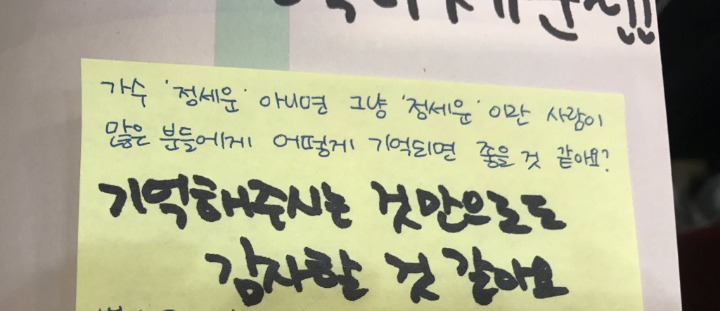 가수 '정세운' 아니면 그냥 '정세운' 이란 사람이
많은 분들에게 어떻게 기억되면 좋을 것 같아요?
기억해주시는 것만으로도
감사할 것 같아요